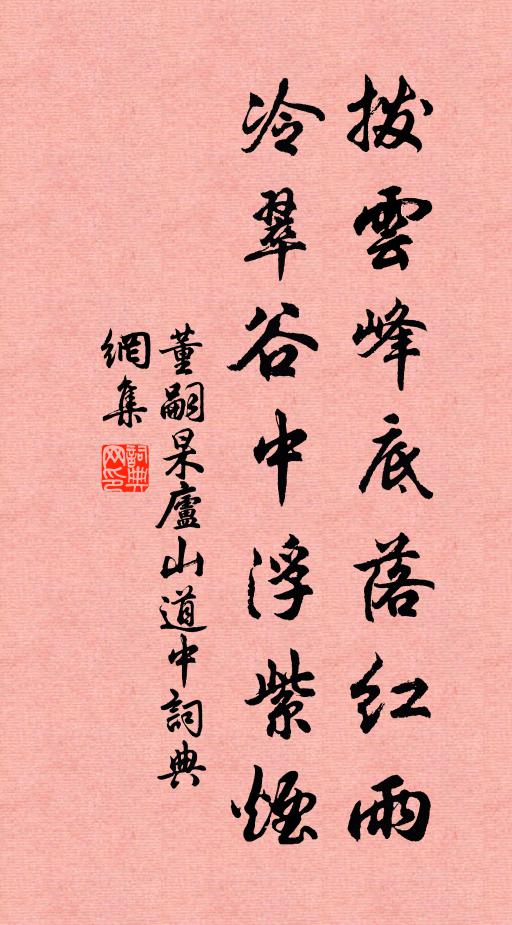 拨雲峰底落红雨
冷翠谷中浮紫煙
董嗣杲廬山道中詞典
網集
詞典
网印